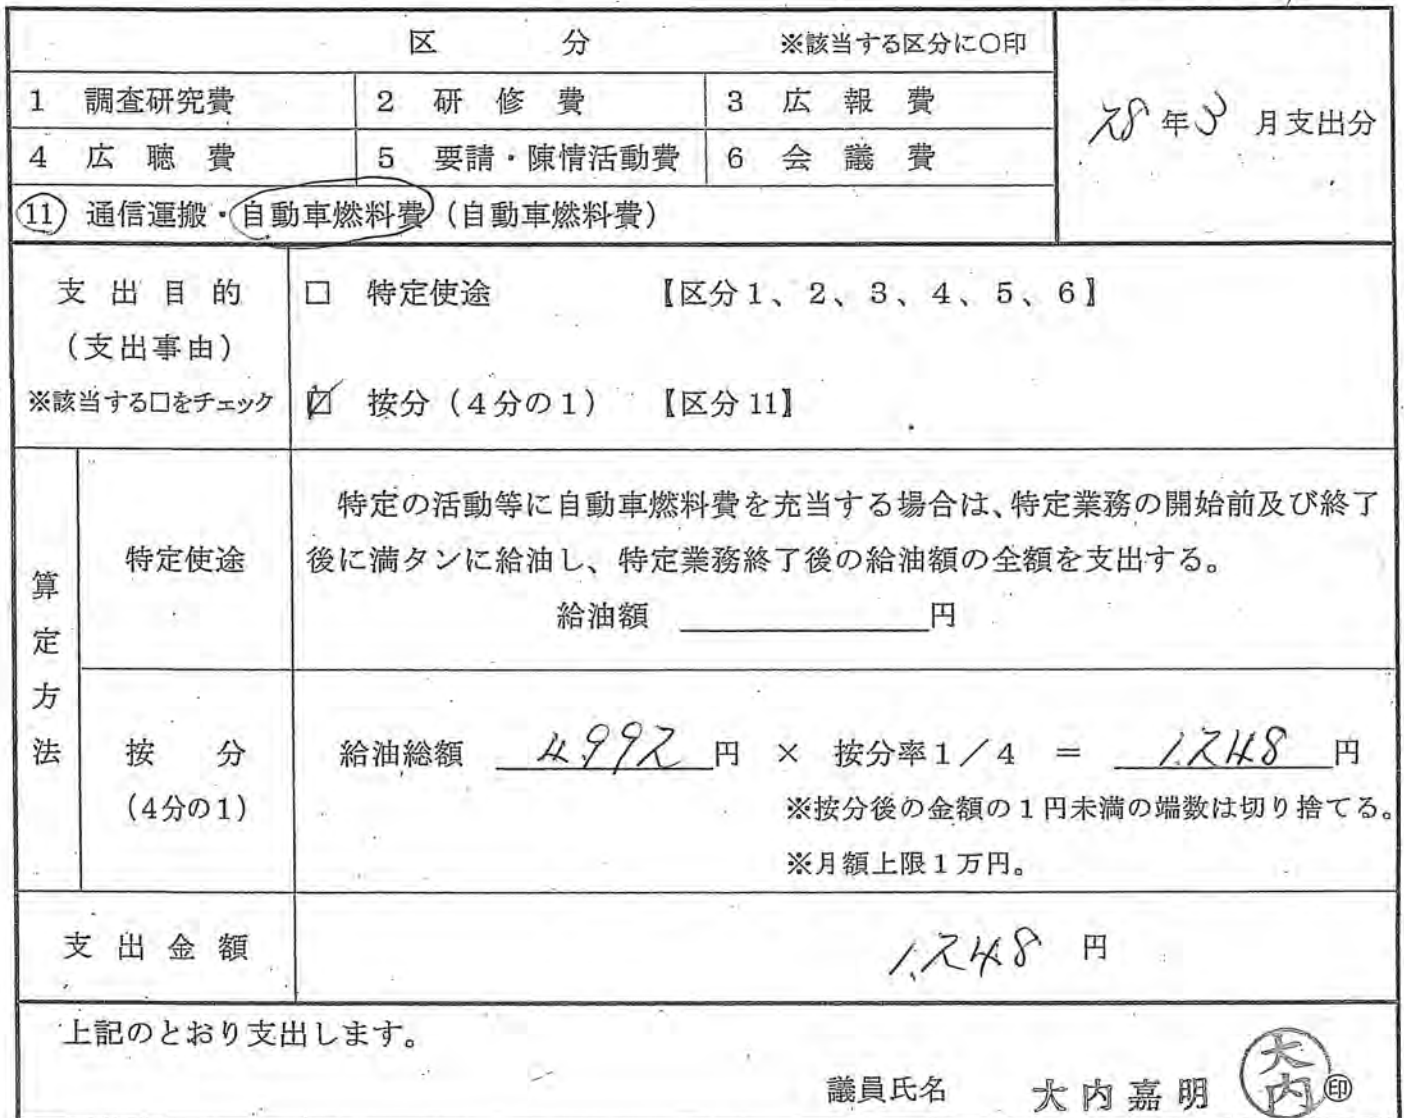 区 分 ※該当する区分に○印
1 調査研究費 2 研修費 3 広報費
28年3月支出分
4 広聴費 5 要請・陳情活動費 6 会議費
11 通信運搬・自動車燃料費(自動車燃料費)
支出目的 □ 特定使途 【区分1、2、3、4、5、6】
(支出事由)
※該当する□をチェック ☑ 按分(4分の1) 【区分11】
算定方法
特定使途
特定の活動等に自動車燃料費を充当する場合は、特定業務の開始前及び終了
後に満タンに給油し、特定業務終了後の給油額の全額を支出する。
給油額 円
按分 給油総額 4,992円 × 按分率1/4 = 1,248円
(4分の1) ※按分後の金額の1円未満の端数は切り捨てる。
※月額上限1万円。
支出金額 1,248円
上記のとおり支出します。
議員氏名 大内嘉明 大内 ㊞